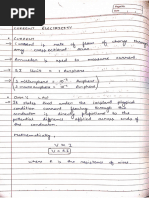 CURRENT ELECTRICITY
CURRENT
Current is rate of flow of charge through
any cross sectional area.
Ammeter is used to measure current
SI Unit = 1 Ampere
1 milliampere = 10⁻³ Ampere
1 microampere = 10⁻⁶ Ampere
OHM'S LAW
It states that under the constant physical
condition current flowing through the
conductor is directly proportional to the
potential difference applied across ends of
the conductor.
Mathematically
V ∝ I
V = RI
where R is the resistance of wire